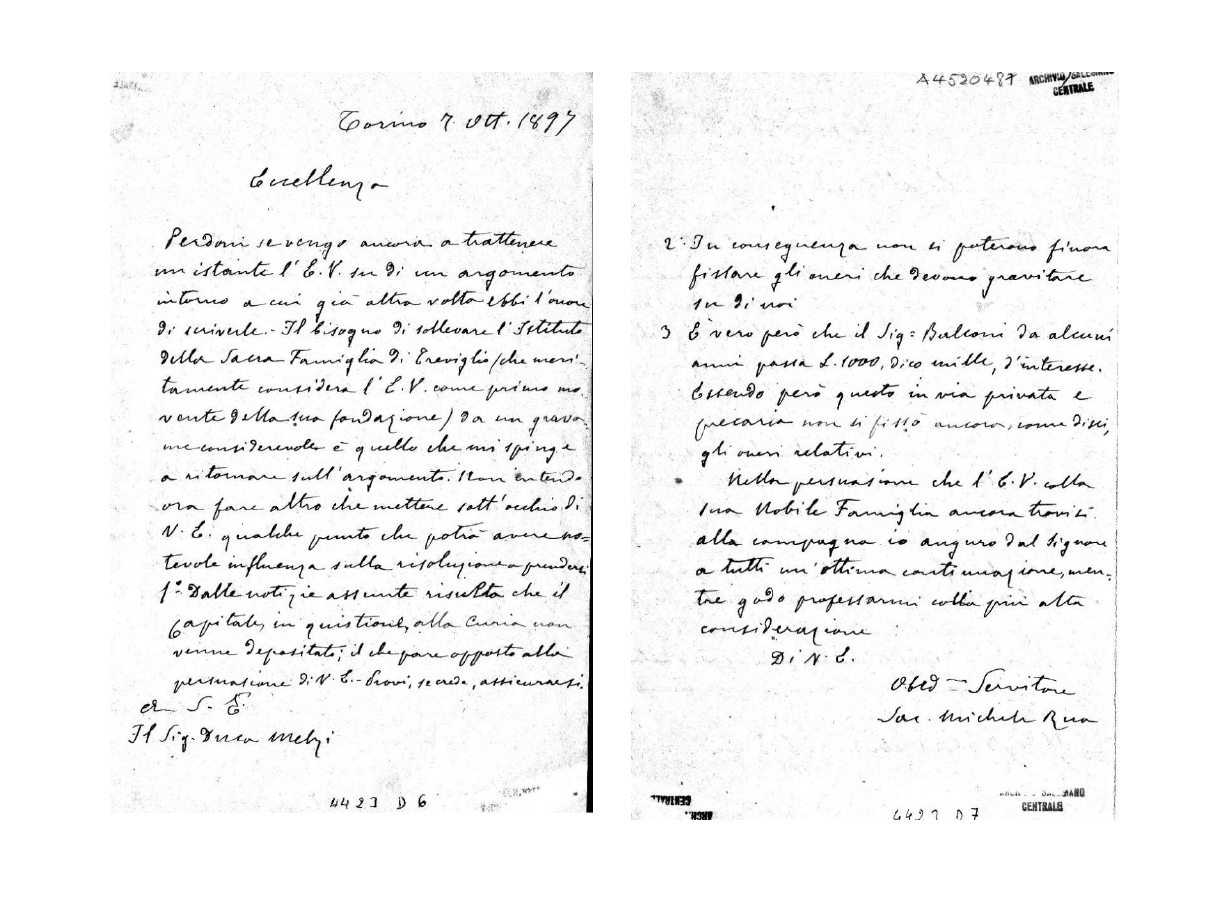 Torino 7. Ott. 1897
Eccellenza
Perdoni se vengo ancora a trattenere
un istante l'E.V. su di un argomento
intorno a cui già altra volta ebbi l'onore
di scriverle.- Il bisogno di sollevare l'Istituto
della Sacra Famiglia di Treviglio (che meri-
tamente considera l'E.V. come primo mo-
vente della sua fondazione) da un grava-
me considerevole è quello che mi spinge
a ritornare sull'argomento. Non intendo
ora fare altro che mettere sott'occhio di
V.E. qualche punto che potrà avere no=
tevole influenza sulla risoluzione a prendersi
1º. Dalle notizie assunte risulta che il
Capitale, in quistione, alla Curia non
venne depositato; il che pare opposto alla
persuasione di V.E.- Provi, se crede, assicurarsi.
A S. E.
Il Sig. Duca Melzi
4423 D 6
A4520487
ARCHIVIO SALESIANO
CENTRALE
2º. In conseguenza non si poterono finora
fissare gli oneri che devono gravitare
su di noi
3 È vero però che il Sig= Balconi da alcuni
anni passa L.1000, dico mille, d'interesse.
Essendo però questo in via privata e
precaria non si fissò ancora, come dissi,
gli oneri relativi.
Nella persuasione che l'E.V. colla
sua Nobile Famiglia ancora trovisi
alla campagna io auguro dal Signore
a tutti un'ottima continuazione, men-
tre godo professarmi colla più alta
considerazione
Di V.E.
Obbd= Servitore
Sac. Michele Rua
CENTRALE
ARCH.
SALESIANO
CENTRALE
4423 D 7